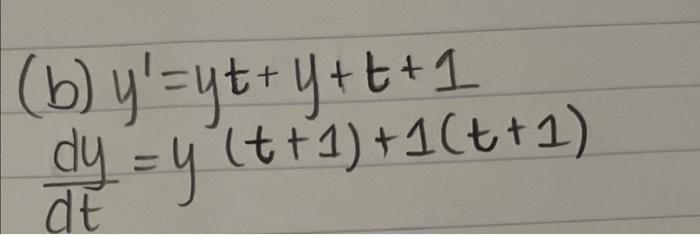 (b) y'=yt+y+t+1
dy/dt = y (t+1)+1(t+1)